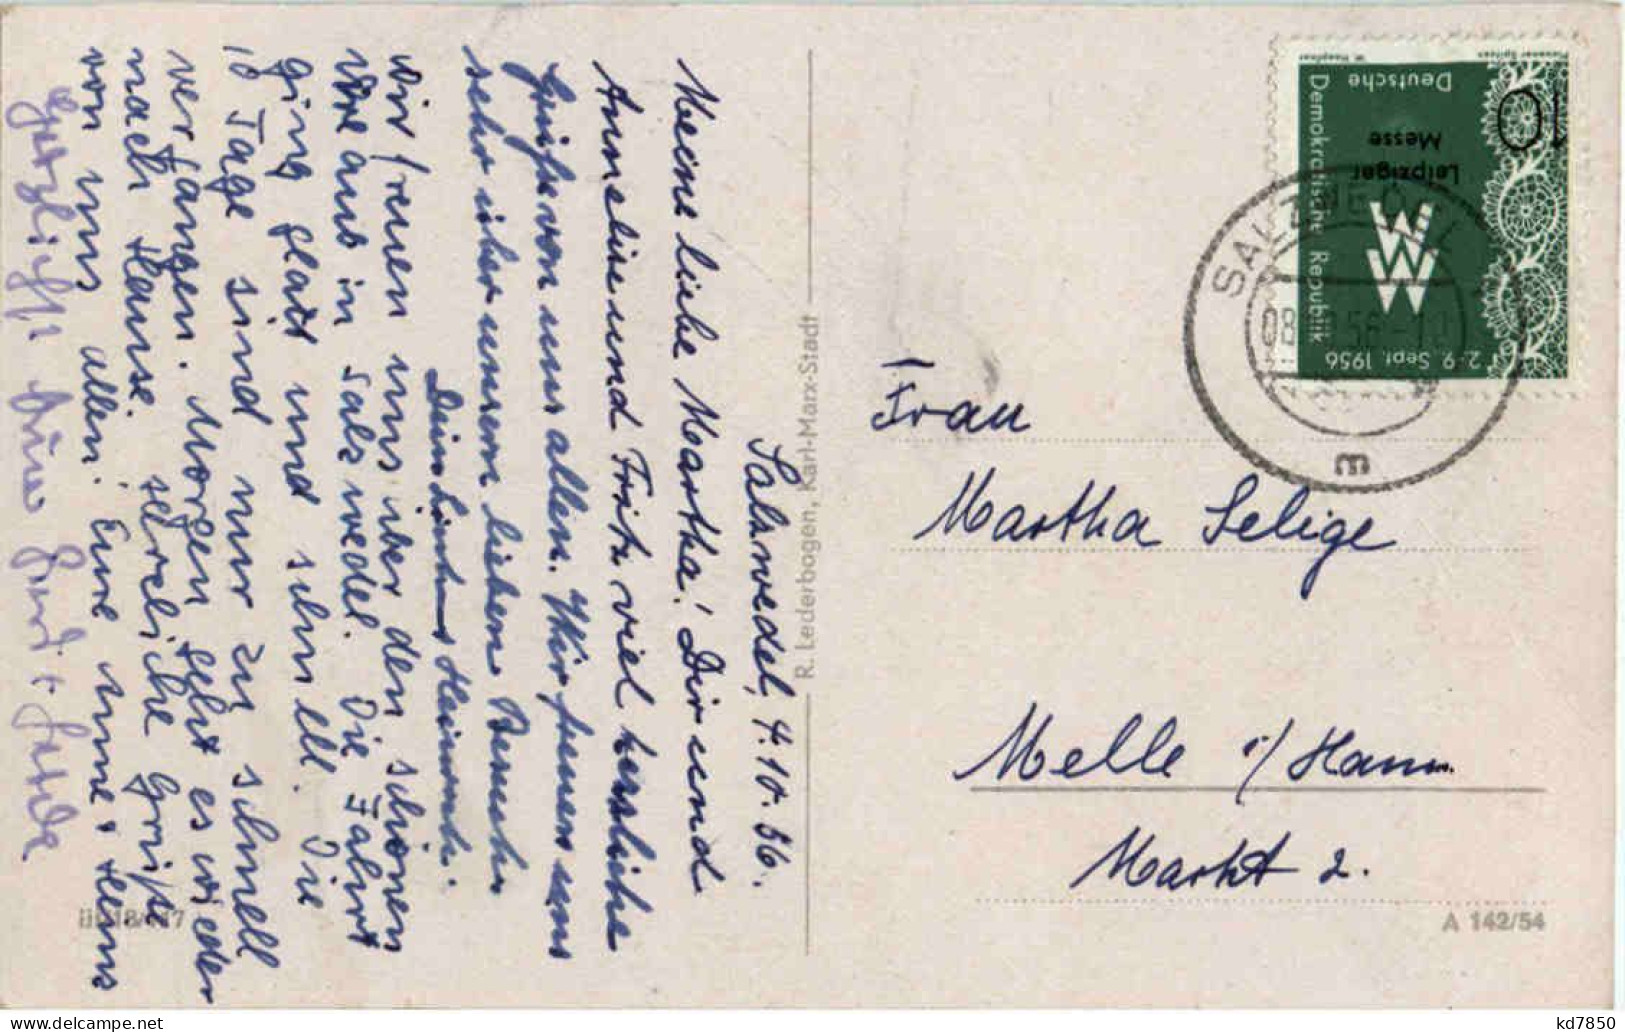 Salzwedel, 4.10.56.
Meine liebe Martha! Dir und
Anneliese und Fritz viel herzliche
Grüße von uns allen. Wir freuen uns
sehr über unsern lieben Besuch
Dein Heinrich.
Wir freuen uns über den schönen
in Salzwedel. Die Fahrt
ging glatt und schnell. Die
10 Tage sind nur zu schnell
vergangen. Morgen geht es wieder
nach Hause. Herzliche Grüße
von uns allen. Eure Anne + Heins
Herzlichst Eure
R. Lederbogen, Karl-Marx-Stadt
III/18/117
A 142/54
Frau
Martha Selige
Melle i/Hann.
Markt 2.
10
Deutsche
Demokratische Republik
Leipziger
Messe
2.-9. Sept. 1956
Plauener Spitzen
SALZWEDEL
m
kd7850